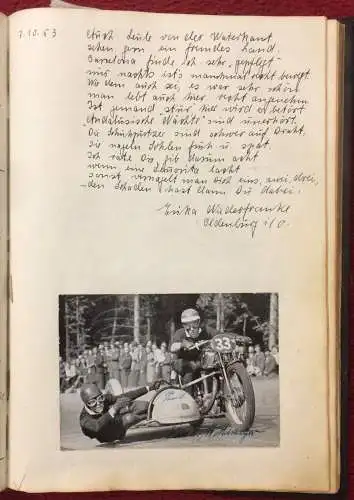 7.10.53
Auch Leute von der Waterkant
sehen gern ein fremdes Land.
Barcelona finde ich sehr „gepflegt"
nur nachts ist's manchmal recht bewegt.
Wo dem auch sei, es war sehr schön
man lebt auch hier recht angenehm.
Ist jemand stur, hier wird er betört
„Andalusische Nächte" sind unerhört.
Die Schuhputzer sind schwer auf Draht.
Sie nageln Sohlen früh u. spät.
Ich rate Dir, gib darum acht
wenn eine Senorita lacht
sonst vernagelt man Dich eins, zwei, drei,
den Schaden hast dann Du dabei.
Erika
Oldenburg i/O.
33